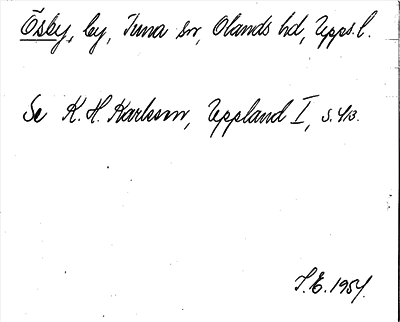 Ösby, by, Tuna sn, Olands hd, Upps. l.
Se K. H. Karlsson, Uppland I, s. 413.
S.E. 1954.